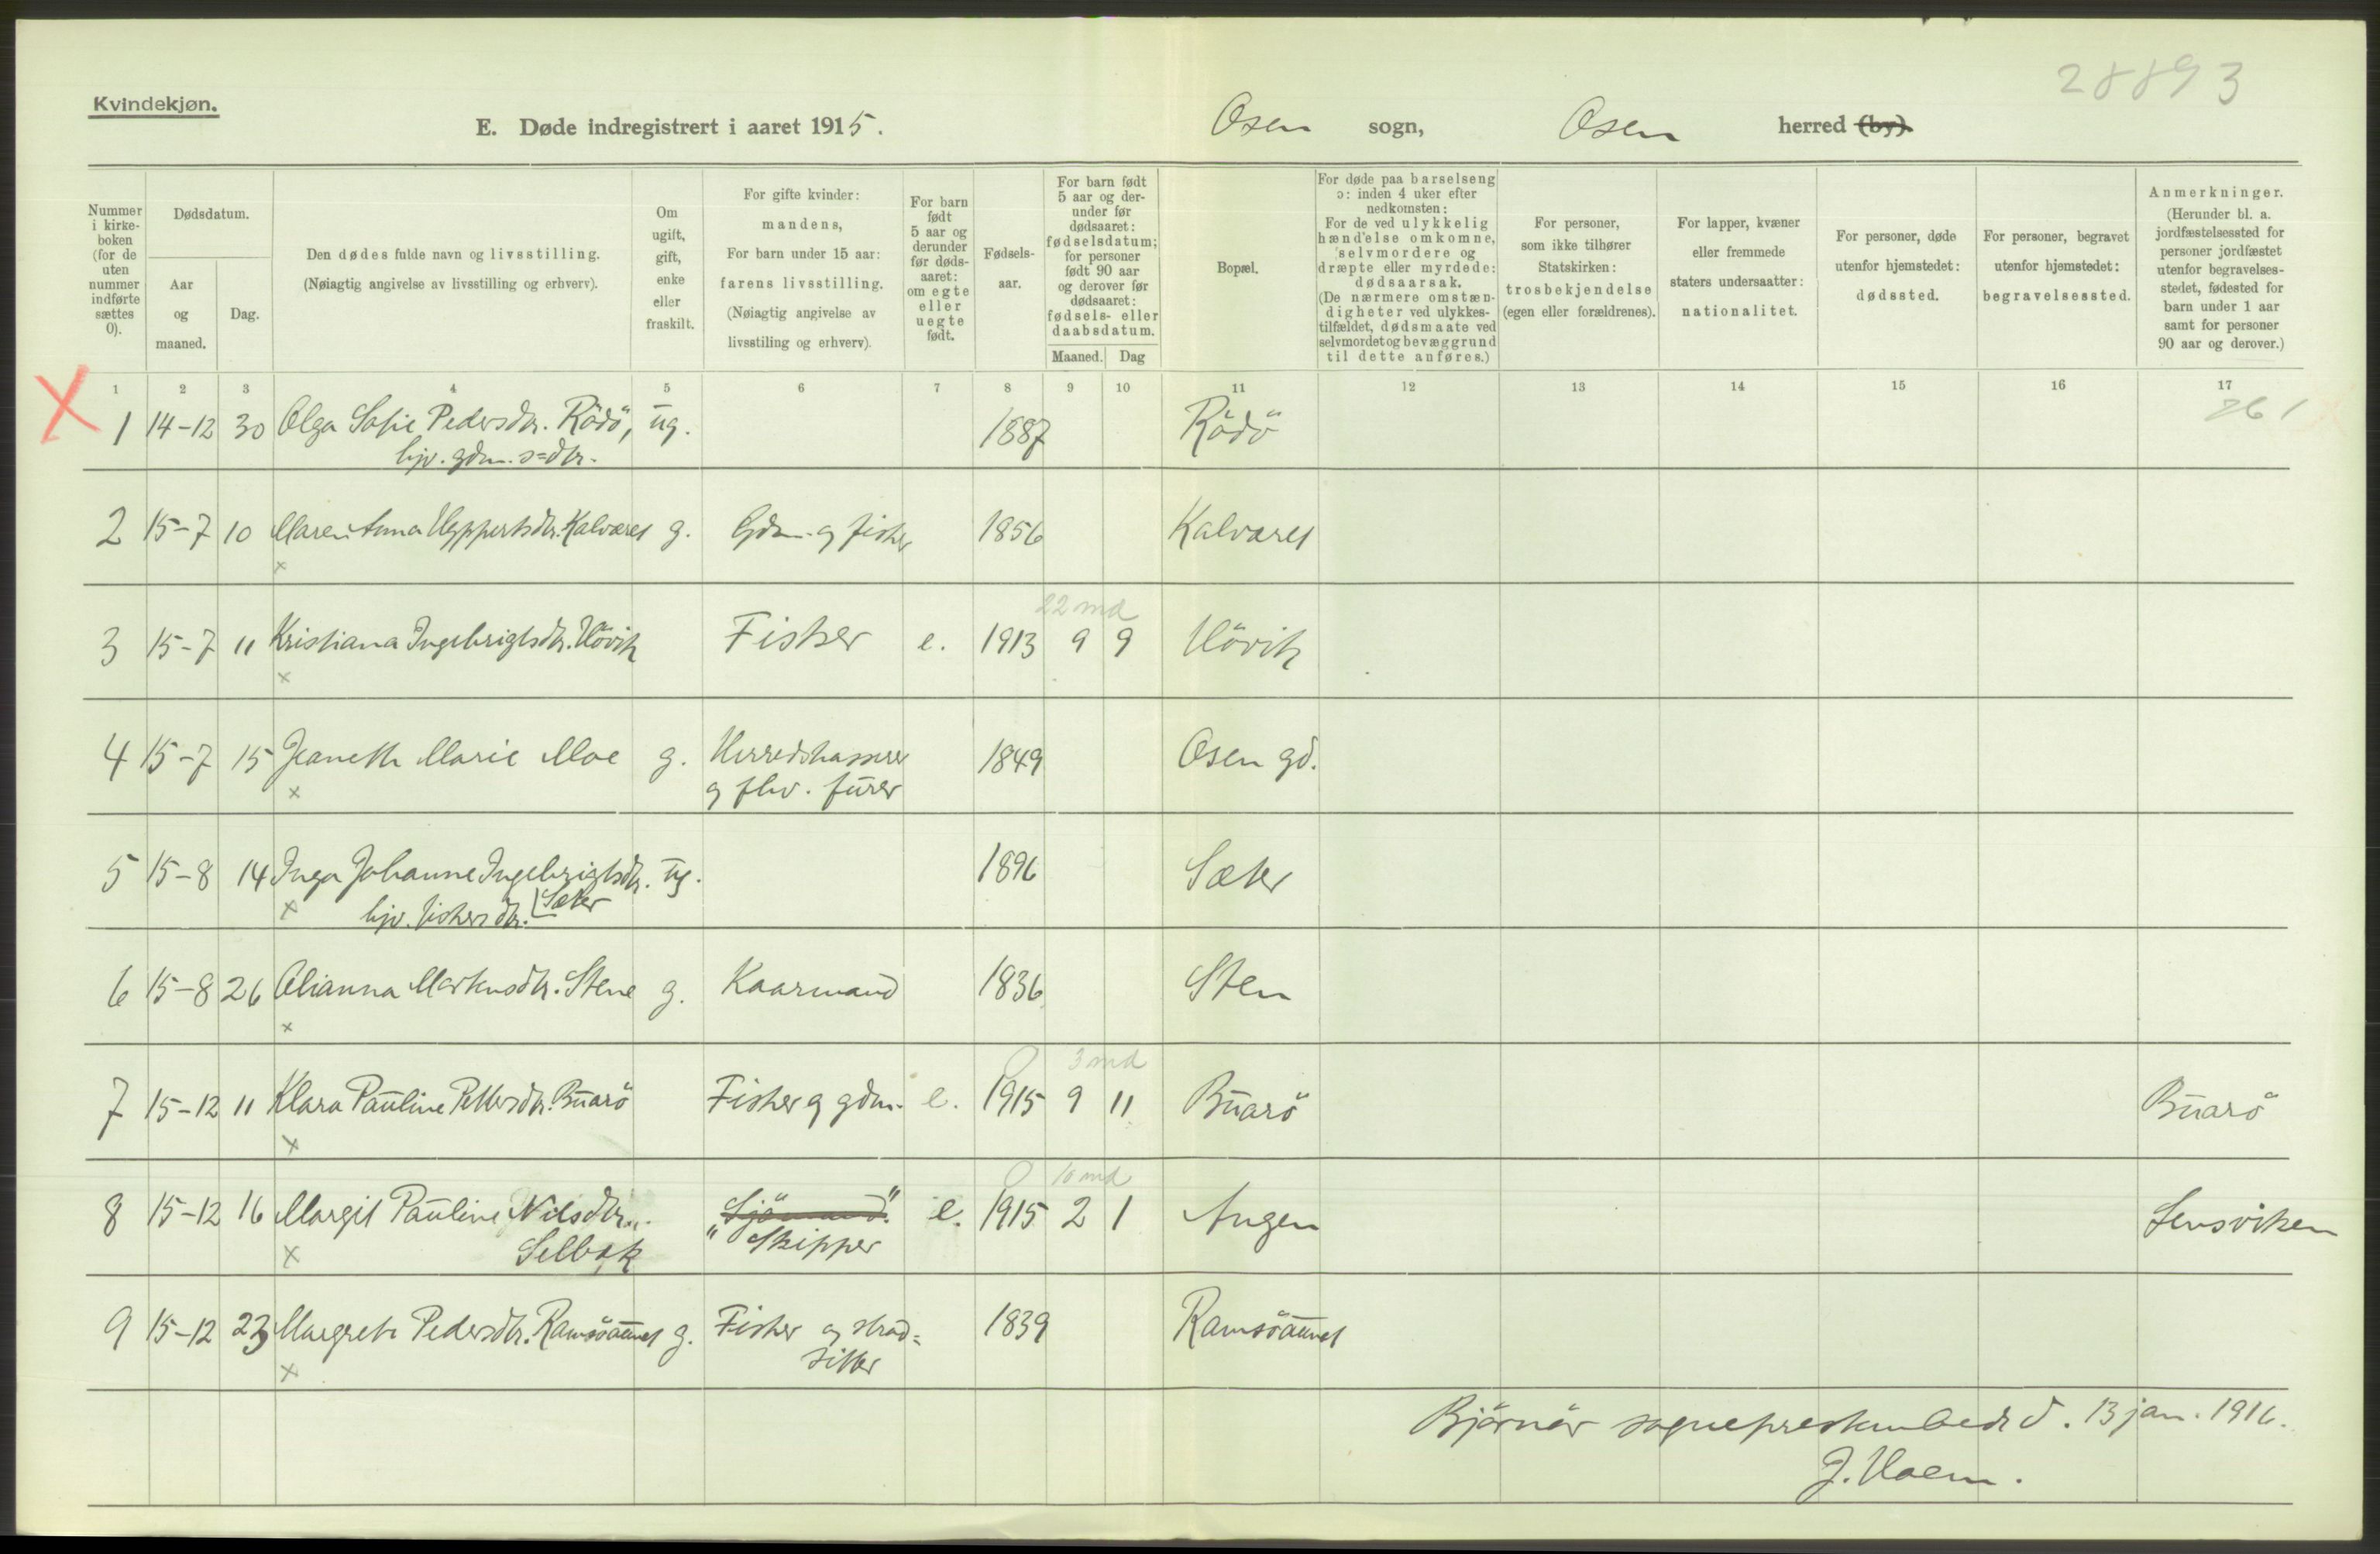 28893
Kvindekjøn.
E. Døde indregistrert i aaret 1915. Osen sogn, Osen herred (by).
Nummer i kirkeboken (for de uten nummer indførte sættes 0).
Dødsdatum.
Aar og maaned.
Dag.
Den dødes fulde navn og livsstilling.
(Nøiagtig angivelse av livsstilling og erhverv).
Om ugift, gift, enke eller fraskilt.
For gifte kvinder: mandens,
For barn under 15 aar: farens livsstilling.
(Nøiagtig angivelse av livsstiling og erhverv).
For barn født 5 aar og derunder før dødsaaret: om egte eller uegte født.
Fødselsaar.
For barn født 5 aar og derunder før dødsaaret: fødselsdatum; for personer født 90 aar og derover før dødsaaret: fødsels- eller daabsdatum.
Maaned. Dag
Bopæl.
For døde paa barselseng ɔ: inden 4 uker efter nedkomsten:
For de ved ulykkelig hændelse omkomne, selvmordere og dræpte eller myrdede: dødsaarsak.
(De nærmere omstændigheter ved ulykkestilfældet, dødsmaate ved selvmordet og bevæggrund til dette anføres.)
For personer, som ikke tilhører Statskirken: trosbekjendelse (egen eller forældrenes).
For lapper, kvæner eller fremmede staters undersaatter: nationalitet.
For personer, døde utenfor hjemstedet: dødssted.
For personer, begravet utenfor hjemstedet: begravelsessted.
Anmerkninger.
(Herunder bl. a. jordfæstelsessted for personer jordfæstet utenfor begravelsesstedet, fødested for barn under 1 aar samt for personer 90 aar og derover.)
1 2 3 4 5 6 7 8 9 10 11 12 13 14 15 16 17
X 1 14-12 30 Olga Sofie Pedersdtr. Rådö, ug. 1887 Rådö 261
hjv. gdm.s=dtr.
2 15-7 10 Maren Anna Hyppertsdtr. Kalværes g. Gdm. og fisker 1856 Kalværes
x
22 md
3 15-7 11 Kristiana Ingebrigtsdtr. Hövik Fisker e. 1913 9 9 Hövik
x
4 15-7 15 Jeanette Marie Moe g. Herredskasserer 1849 Osen gd.
x og fhv. furer
5 15-8 14 Inga Johanne Ingebrigtsdtr. ug. 1896 Sæter
x hjv. fiskers dtr. Sæter
6 15-8 26 Olianna Martensdtr. Stene g. Kaarmand 1836 Sten
x
0 3 md
7 15-12 11 Klara Pauline Pettersdtr. Buarö Fisker og gdm. e. 1915 9 11 Buarö Buarö
x
0 10 md
8 15-12 16 Margit Pauline Nilsdtr. "Sjömand" e. 1915 2 1 Angen Sensviken
x Selbæk "Skipper
9 15-12 23 Margrete Pedersdtr. Ramsöaunet g. Fisker og strand= 1839 Ramsöaunet
x sitter
Björnör sogneprestembede d. 13 jan. 1916.